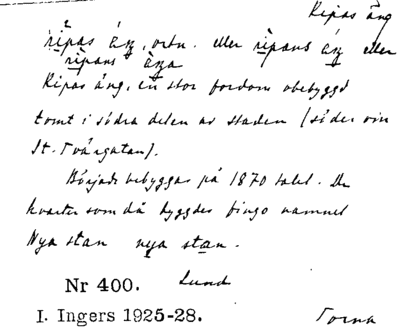 Ripas äng
rìpas áŋ, ortn. eller rìpans áŋ eller
rìpans áŋa
Ripas äng, en stor fordom obebyggd
tomt i södra delen av staden (söder om
St. Tvärgatan).
Började bebyggas på 1870 talet. De
kvarter som då byggdes fingo namnet
Nya stan nya stan.
Nr 400. Lund
I. Ingers 1925-28. Torna